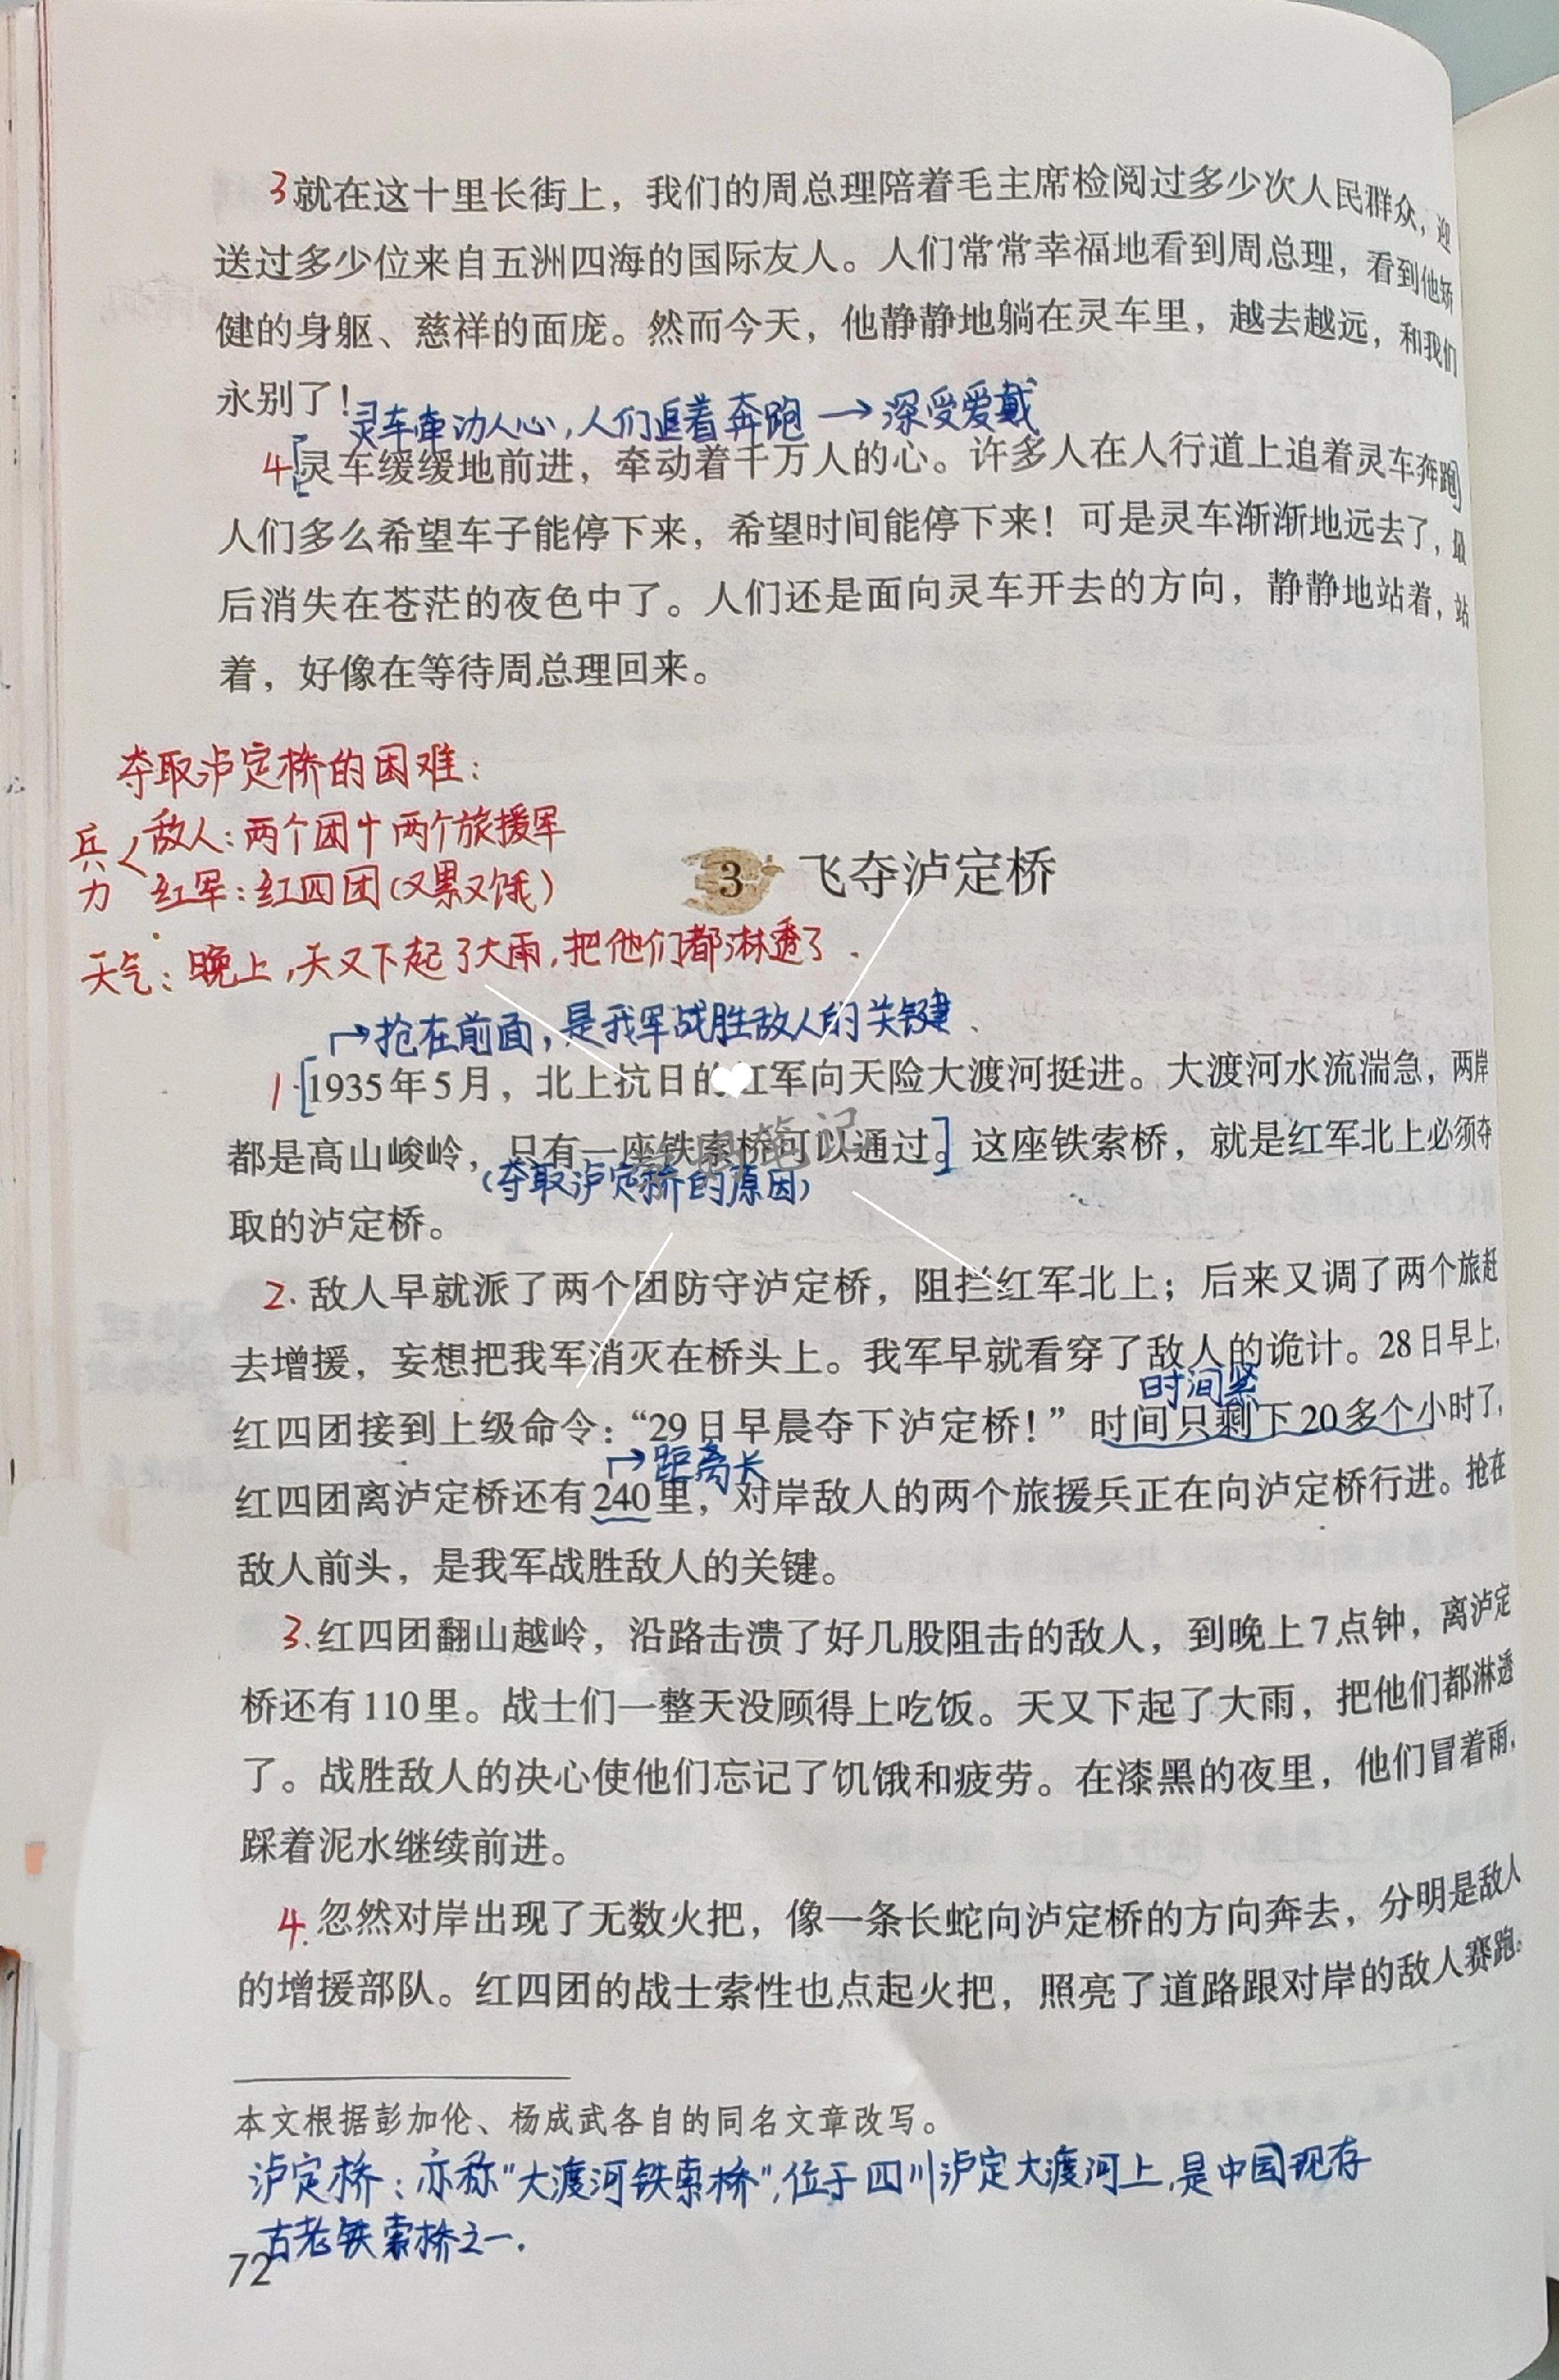 3就在这十里长街上，我们的周总理陪着毛主席检阅过多少次人民群众，迎
送过多少位来自五洲四海的国际友人。人们常常幸福地看到周总理，看到他矫
健的身躯、慈祥的面庞。然而今天，他静静地躺在灵车里，越去越远，和我们
永别了！
灵车牵动人心，人们追着奔跑→深受爱戴
4[灵车缓缓地前进，牵动着千万人的心。许多人在人行道上追着灵车奔跑]
人们多么希望车子能停下来，希望时间能停下来！可是灵车渐渐地远去了，最
后消失在苍茫的夜色中了。人们还是面向灵车开去的方向，静静地站着，站
着，好像在等待周总理回来。
夺取泸定桥的困难：
兵力<敌人：两个团+两个旅援军
红军：红四团（又累又饿）
3 飞夺泸定桥
天气：晚上，天又下起了大雨，把他们都淋透了.
→抢在前面，是我军战胜敌人的关键、
1.[1935年5月，北上抗日的红军向天险大渡河挺进。大渡河水流湍急，两岸
都是高山峻岭，只有一座铁索桥可以通过。]这座铁索桥，就是红军北上必须夺
（夺取泸定桥的原因）
取的泸定桥。
2.敌人早就派了两个团防守泸定桥，阻拦红军北上；后来又调了两个旅赶
去增援，妄想把我军消灭在桥头上。我军早就看穿了敌人的诡计。28日早上，
时间紧
红四团接到上级命令：“29日早晨夺下泸定桥！”时间只剩下20多个小时了，
→距离长
红四团离泸定桥还有240里，对岸敌人的两个旅援兵正在向泸定桥行进。抢在
敌人前头，是我军战胜敌人的关键。
3.红四团翻山越岭，沿路击溃了好几股阻击的敌人，到晚上7点钟，离泸定
桥还有110里。战士们一整天没顾得上吃饭。天又下起了大雨，把他们都淋透
了。战胜敌人的决心使他们忘记了饥饿和疲劳。在漆黑的夜里，他们冒着雨，
踩着泥水继续前进。
4.忽然对岸出现了无数火把，像一条长蛇向泸定桥的方向奔去，分明是敌人
的增援部队。红四团的战士索性也点起火把，照亮了道路跟对岸的敌人赛跑。
本文根据彭加伦、杨成武各自的同名文章改写。
泸定桥：亦称“大渡河铁索桥”，位于四川泸定大渡河上，是中国现存
古老铁索桥之一.
72